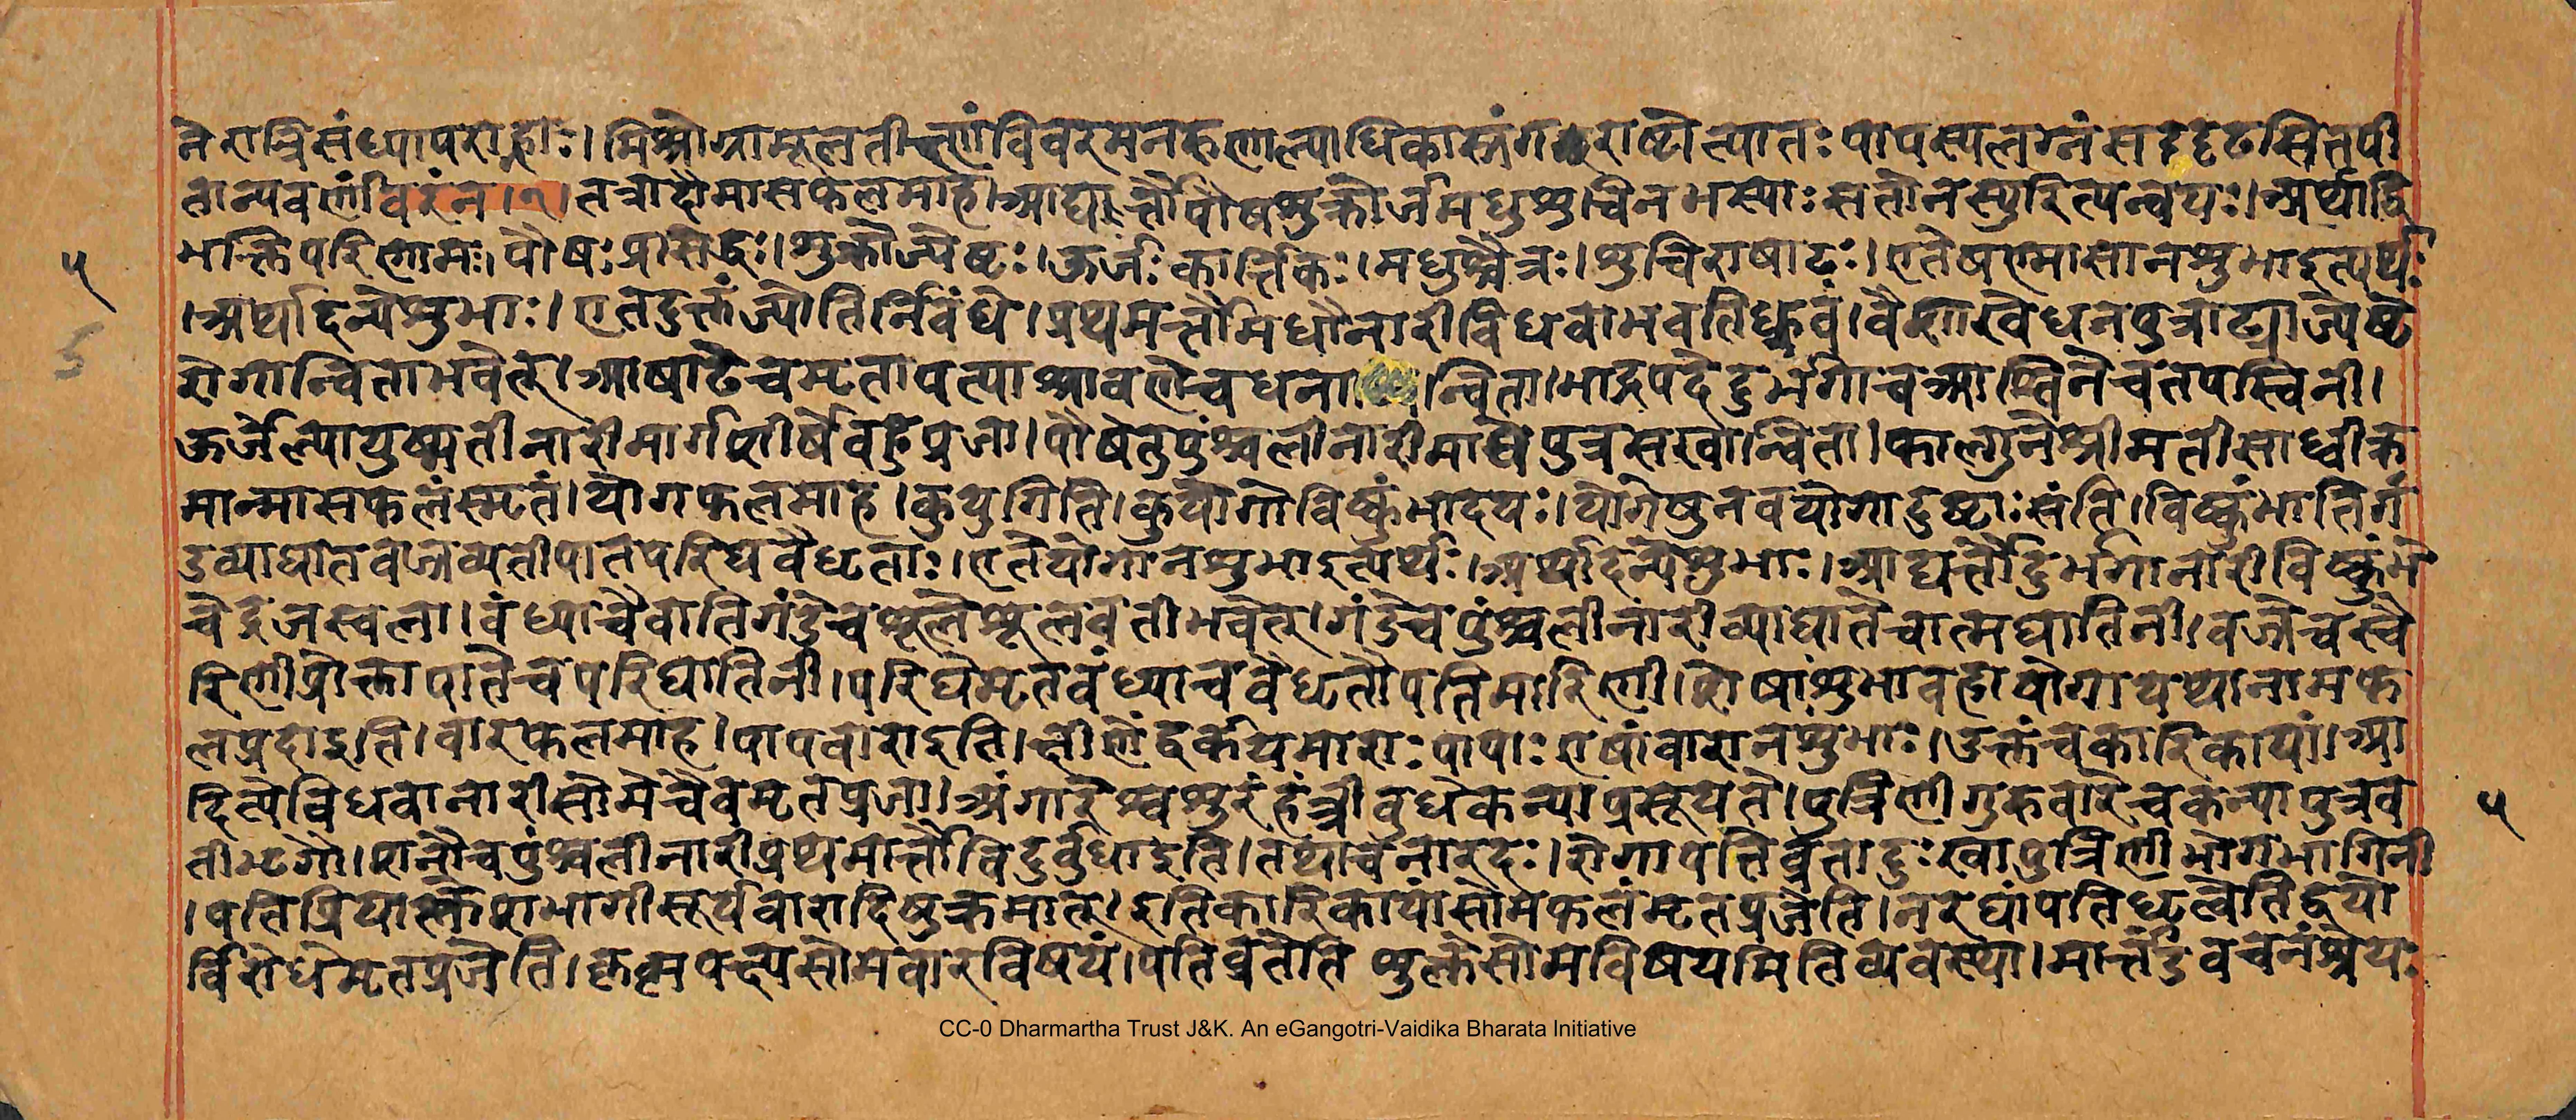 ने रात्रिसंध्यापराह्णाः। मिश्रोग्रामूलतीक्ष्णंविवरमनरुणाल्पाधिकास्रंग राष्टोत्पातः पापस्यलग्नंसदृदृढसितपी
तान्यवर्णांवरंन।१।तत्रादौमासफलमाह।आद्यर्त्तौपौषशुक्रोर्जमधुशुचिनभस्याः सतोनस्युरित्यन्वयः।अर्थाद्वि
भक्तिपरिणामः।पौषःप्रसिद्धः।शुक्रोज्येष्टः।ऊर्जः कार्त्तिकः।मधुश्चैत्रः।शुचिराषाढः।एतेषण्मासानशुभाइत्यर्थः
।अर्थादन्येशुभाः।एतदुक्तंज्योतिर्निबंधे।प्रथमर्त्तौमधौनारीविधवाभवतिध्रुवं।वैशाखेधनपुत्राढ्याज्येष्टे
रोगान्विताभवेत्।आषाढेचमृतापत्याश्रावणेचधना न्विता।भाद्रपदेदुर्भगाचआश्विनेचतपस्विनी।
ऊर्जेल्पायुष्मतीनारीमार्गशीर्षेबहुप्रजा।पौषेतुपुंश्चलीनारीमाघेपुत्रसखान्विता।फाल्गुनेश्रीमतीसाध्वीक्र
मान्मासफलंस्मृतं।योगफलमाह।कुयुगिति।कुयोगोविष्कुंभादयः।योगेषुनवयोगादुष्टाःसंति।विष्कुंभातिगं
डव्याघातवज्रव्यतीपातपरिघवैधृताः।एतेयोगानशुभाइत्यर्थः।अर्थादन्येशुभाः।आद्यर्त्तौदुर्भगानारीविष्कुंभे
चेद्रजस्वला।वंध्याचैवातिगंडेचशूलेशूलवतीभवेत्।गंडेचपुंश्चलीनारीव्याघातेचात्मघातिनी।वज्रेचस्वै
रिणीप्रोक्तापातेचपरिघातिनी।परिघेमृतवंध्याचवैधृतौपतिमारिणी।शेषांशुभावहायोगायथानामफ
लप्रदाइति।वारफलमाह।पापवाराइति।क्षीणेंद्वर्कयमाराःपापाः एषांवारानशुभाः।उक्तंचकारिकायां।आ
दित्येविधवानारीसोमेचैवमृतप्रजा।अंगारेश्वशुरंहंत्रीबुधेकन्याप्रसूयते।पुत्रिणीगुरुवारेचकन्यापुत्रव
तीभृगौ।शनौचपुंश्चलीनारीप्रथमार्त्तौविदुर्बुधाइति।तथाचनारदः।रोगीपतिर्व्रतादुःखापुत्रिणीभोगभागिनी
।पतिप्रियाक्लेशभागीसूर्यवारादिषुक्रमात्।इतिकारिकायांसोमफलंमृतप्रजेति।नरेघांपतिधृत्वेतिद्वयो
र्विरोधेमृतप्रजेति।कृष्णपक्ष्यसोमवारविषयं।पतिव्रतेति शुक्लेसोमविषयमितिव्यवस्था।मार्त्तंडवचनंश्रेयः
५
५
CC-0 Dharmartha Trust J&K. An eGangotri-Vaidika Bharata Initiative